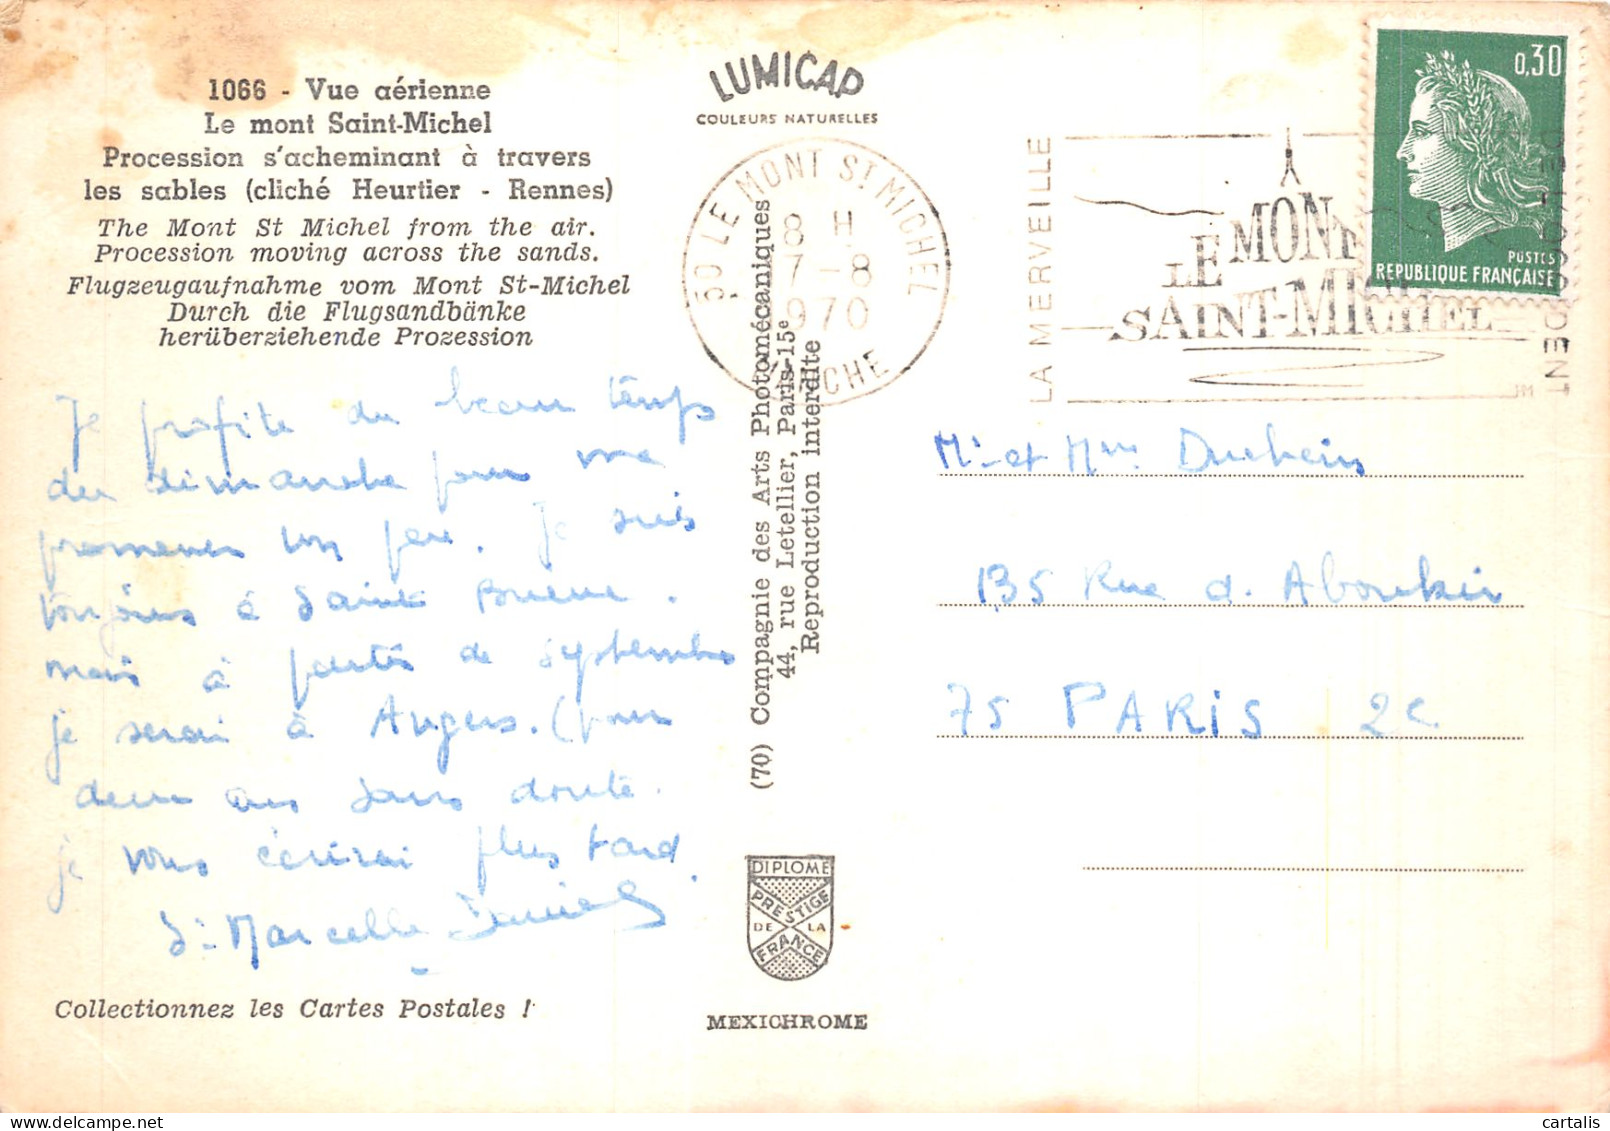 1066 - Vue aérienne
Le mont Saint-Michel
Procession s'acheminant à travers
les sables (cliché Heurtier - Rennes)
The Mont St Michel from the air.
Procession moving across the sands.
Flugzeugaufnahme vom Mont St-Michel
Durch die Flugsandbänke
herüberziehende Prozession
Je profite du beau temps
du dimanche pour me
promener un peu. Je suis
toujours à Sainte
mais à partir de septembre
je serai à Angers. (pour
deux ans sans doute.
je vous écrirai plus tard.
Sr Marcelle
Collectionnez les Cartes Postales !
LUMICAP
COULEURS NATURELLES
50 LE MONT ST MICHEL
8 H
7-8
1970
MANCHE
(70) Compagnie des Arts Photomécaniques
44, rue Letellier, Paris-15e
Reproduction interdite
DIPLOME
PRESTIGE
DE LA
FRANCE
MEXICHROME
LA MERVEILLE
LE MONT
SAINT-MICHEL
DE L'OCCIDENT
JM
0,30
POSTES
REPUBLIQUE FRANÇAISE
Mr et Mme
135 Rue d. Aboukir
75 PARIS 2e
cartalis